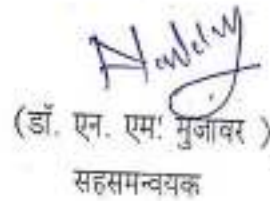 (डॉ. एन. एम. मुजावर )
सहसमन्वयक